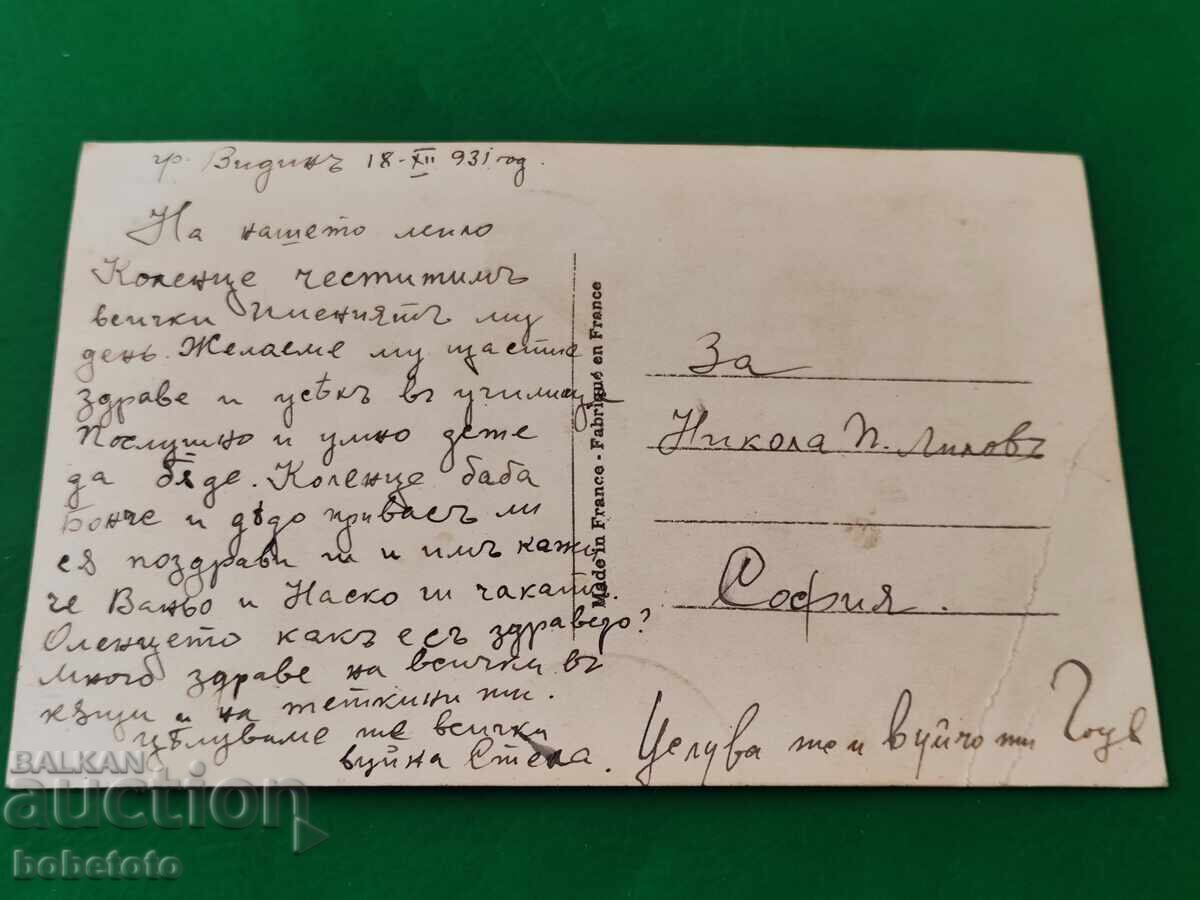 гр. Видинъ 18-XII 931 год.
На нашето мило
Коленце честитимъ
всички Именниятъ му
день. Желаеме му щастие
здраве и успѣхъ въ училище
Послушно и умно дете
да бѫде. Коленце баба
Бонче и дѣдо
сѫ поздрави ги и имъ кажи
че Ваньо и Наско ги чакатъ.
Оленцето какъ е съ здравето?
Много здраве на всички въ
кѫщи и на теткини ти.
Цѣлуваме те всички
вуйна Стека.
Целува те и вуйчо ти Гоце
За
Никола П. Лиловъ
София.
Made in France - Fabriqué en France
BALKAN
auction
bobetoto